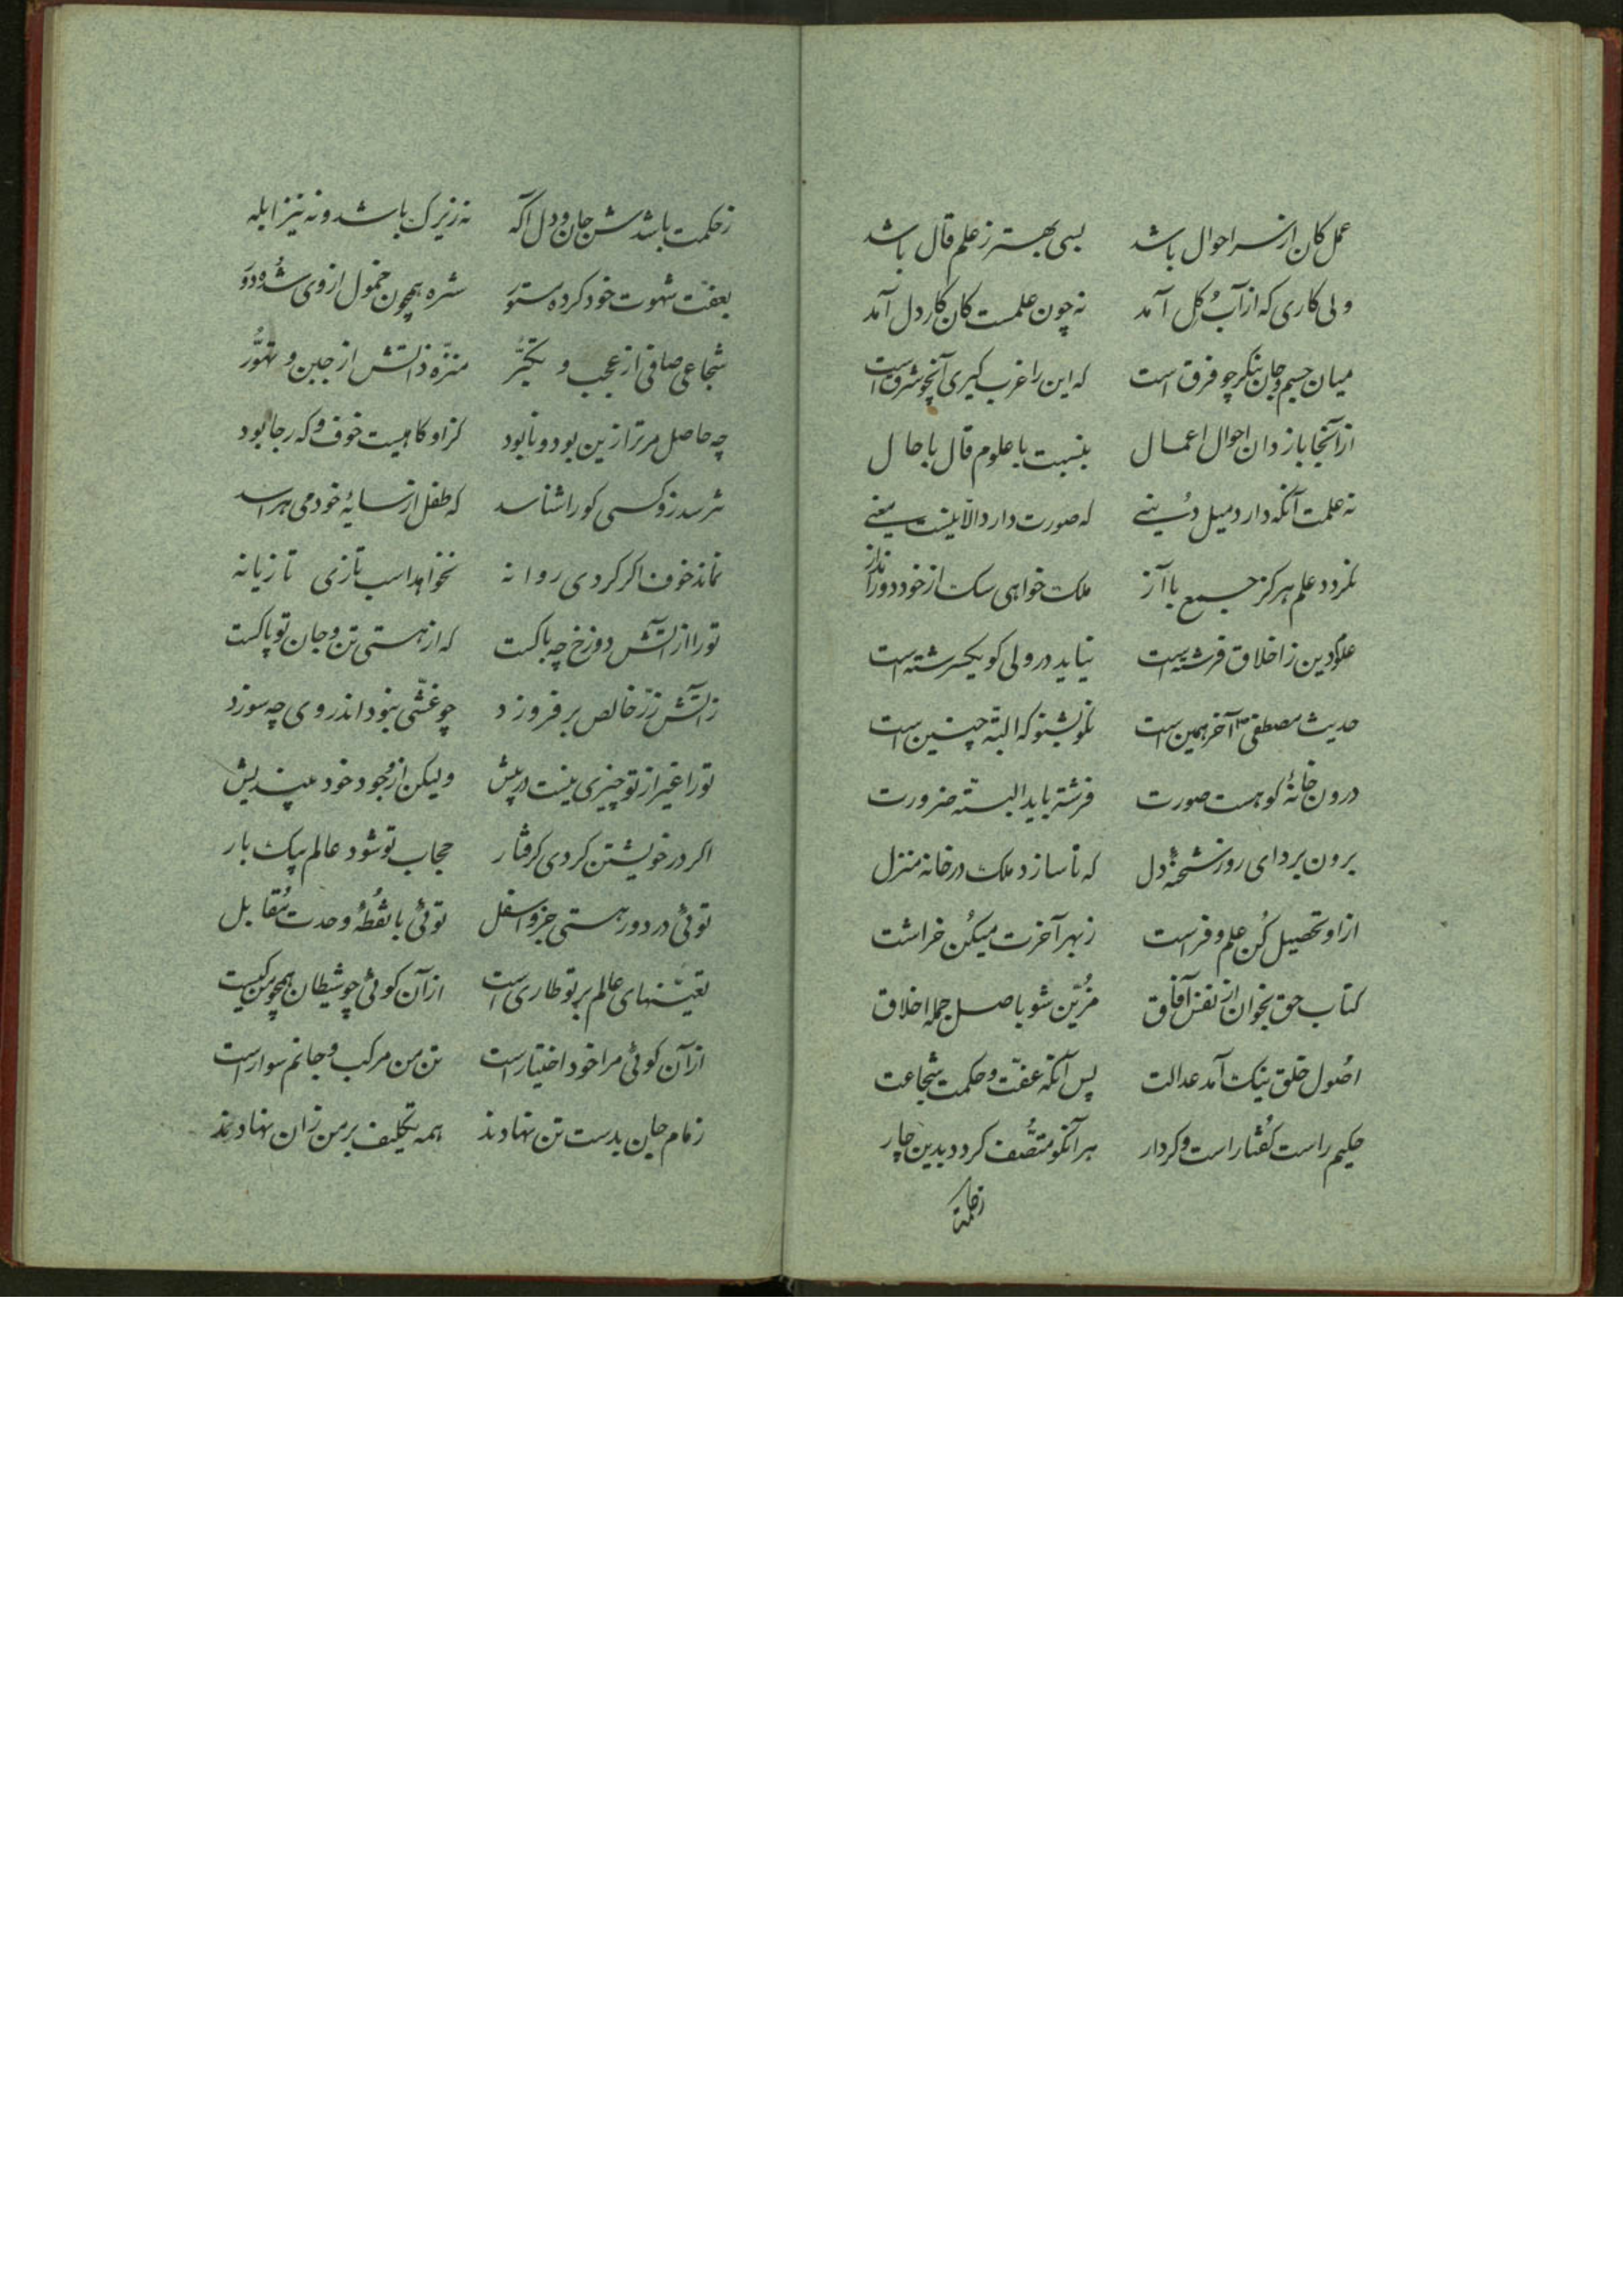 عمل کان از سر احوال باشد بسی بهتر ز علم قال باشد
ولی کاری که از آب و گل آمد نه چون علمست کان کار دل آمد
میان جسم و جان بنگر چو فرق است که این را غرب گیری آنچو شرق است
از آنجا باز دان احوال اعمال بنسبت با علوم قال با حال
نه علمت آنکه دارد میل دنیی که صورت دارد الا نیست معنی
نگردد علم هرگز جمع با آز ملک خواهی سگ از خود دور انداز
علوم دین ز اخلاق فرشته است نیاید در ولی کو یکسرشته است
حدیث مصطفی آخر همین است نکو بشنو که البته چنین است
درون خانهٔ کو هست صورت فرشته باید البته ضرورت
برون بر دای روز تختهٔ دل که تا سازد ملک در خانه منزل
از او تحصیل کن علم و فراست ز بهر آخرت میکن خراشت
کتاب حق بخوان از نفس آفاق مزین شو باصل جمله اخلاق
اصول خلق نیک آمد عدالت پس آنکه عفت و حکمت شجاعت
حکیم راست گفتار است و کردار هر آنکو متصف گردد بدین چار
ز حکمت
ز حکمت باشدش جان و دل آگه نه زیرک باشد و نه نیز ابله
بعفت شهوت خود کرده مستور شره همچون خمول از وی شده دور
شجاعی صافی از عجب و تکبر منزه ذاتش از جبن و تهور
چه حاصل مر ترا زین بود و نابود کز او گاهیست خوف و گه رجا بود
نترسد زو کسی کو را شناسد که طفل از سایهٔ خود می هراسد
نماند خوف اگر گردی روانه نخواهد اسب تازی تازیانه
تو را از آتش دوزخ چه باکست که از هستی تن و جان تو پاکست
ز آتش زر خالص برفروزد چو غشی نبود اندر وی چه سوزد
تو را غیر از تو چیزی نیست در پیش ولیکن از وجود خود میندیش
اگر در خویشتن گردی گرفتار حجاب تو شود عالم بیک بار
توئی در دور هستی جزو اسفل توئی با نقطهٔ وحدت مقابل
تعینهای عالم بر تو طاری است از آن گوئی چو شیطان همچو من کیست
از آن گوئی مرا خود اختیار است تن من مرکب و جانم سوار است
زمام جان بدست تن نهادند همه تکلیف بر من زان نهادند